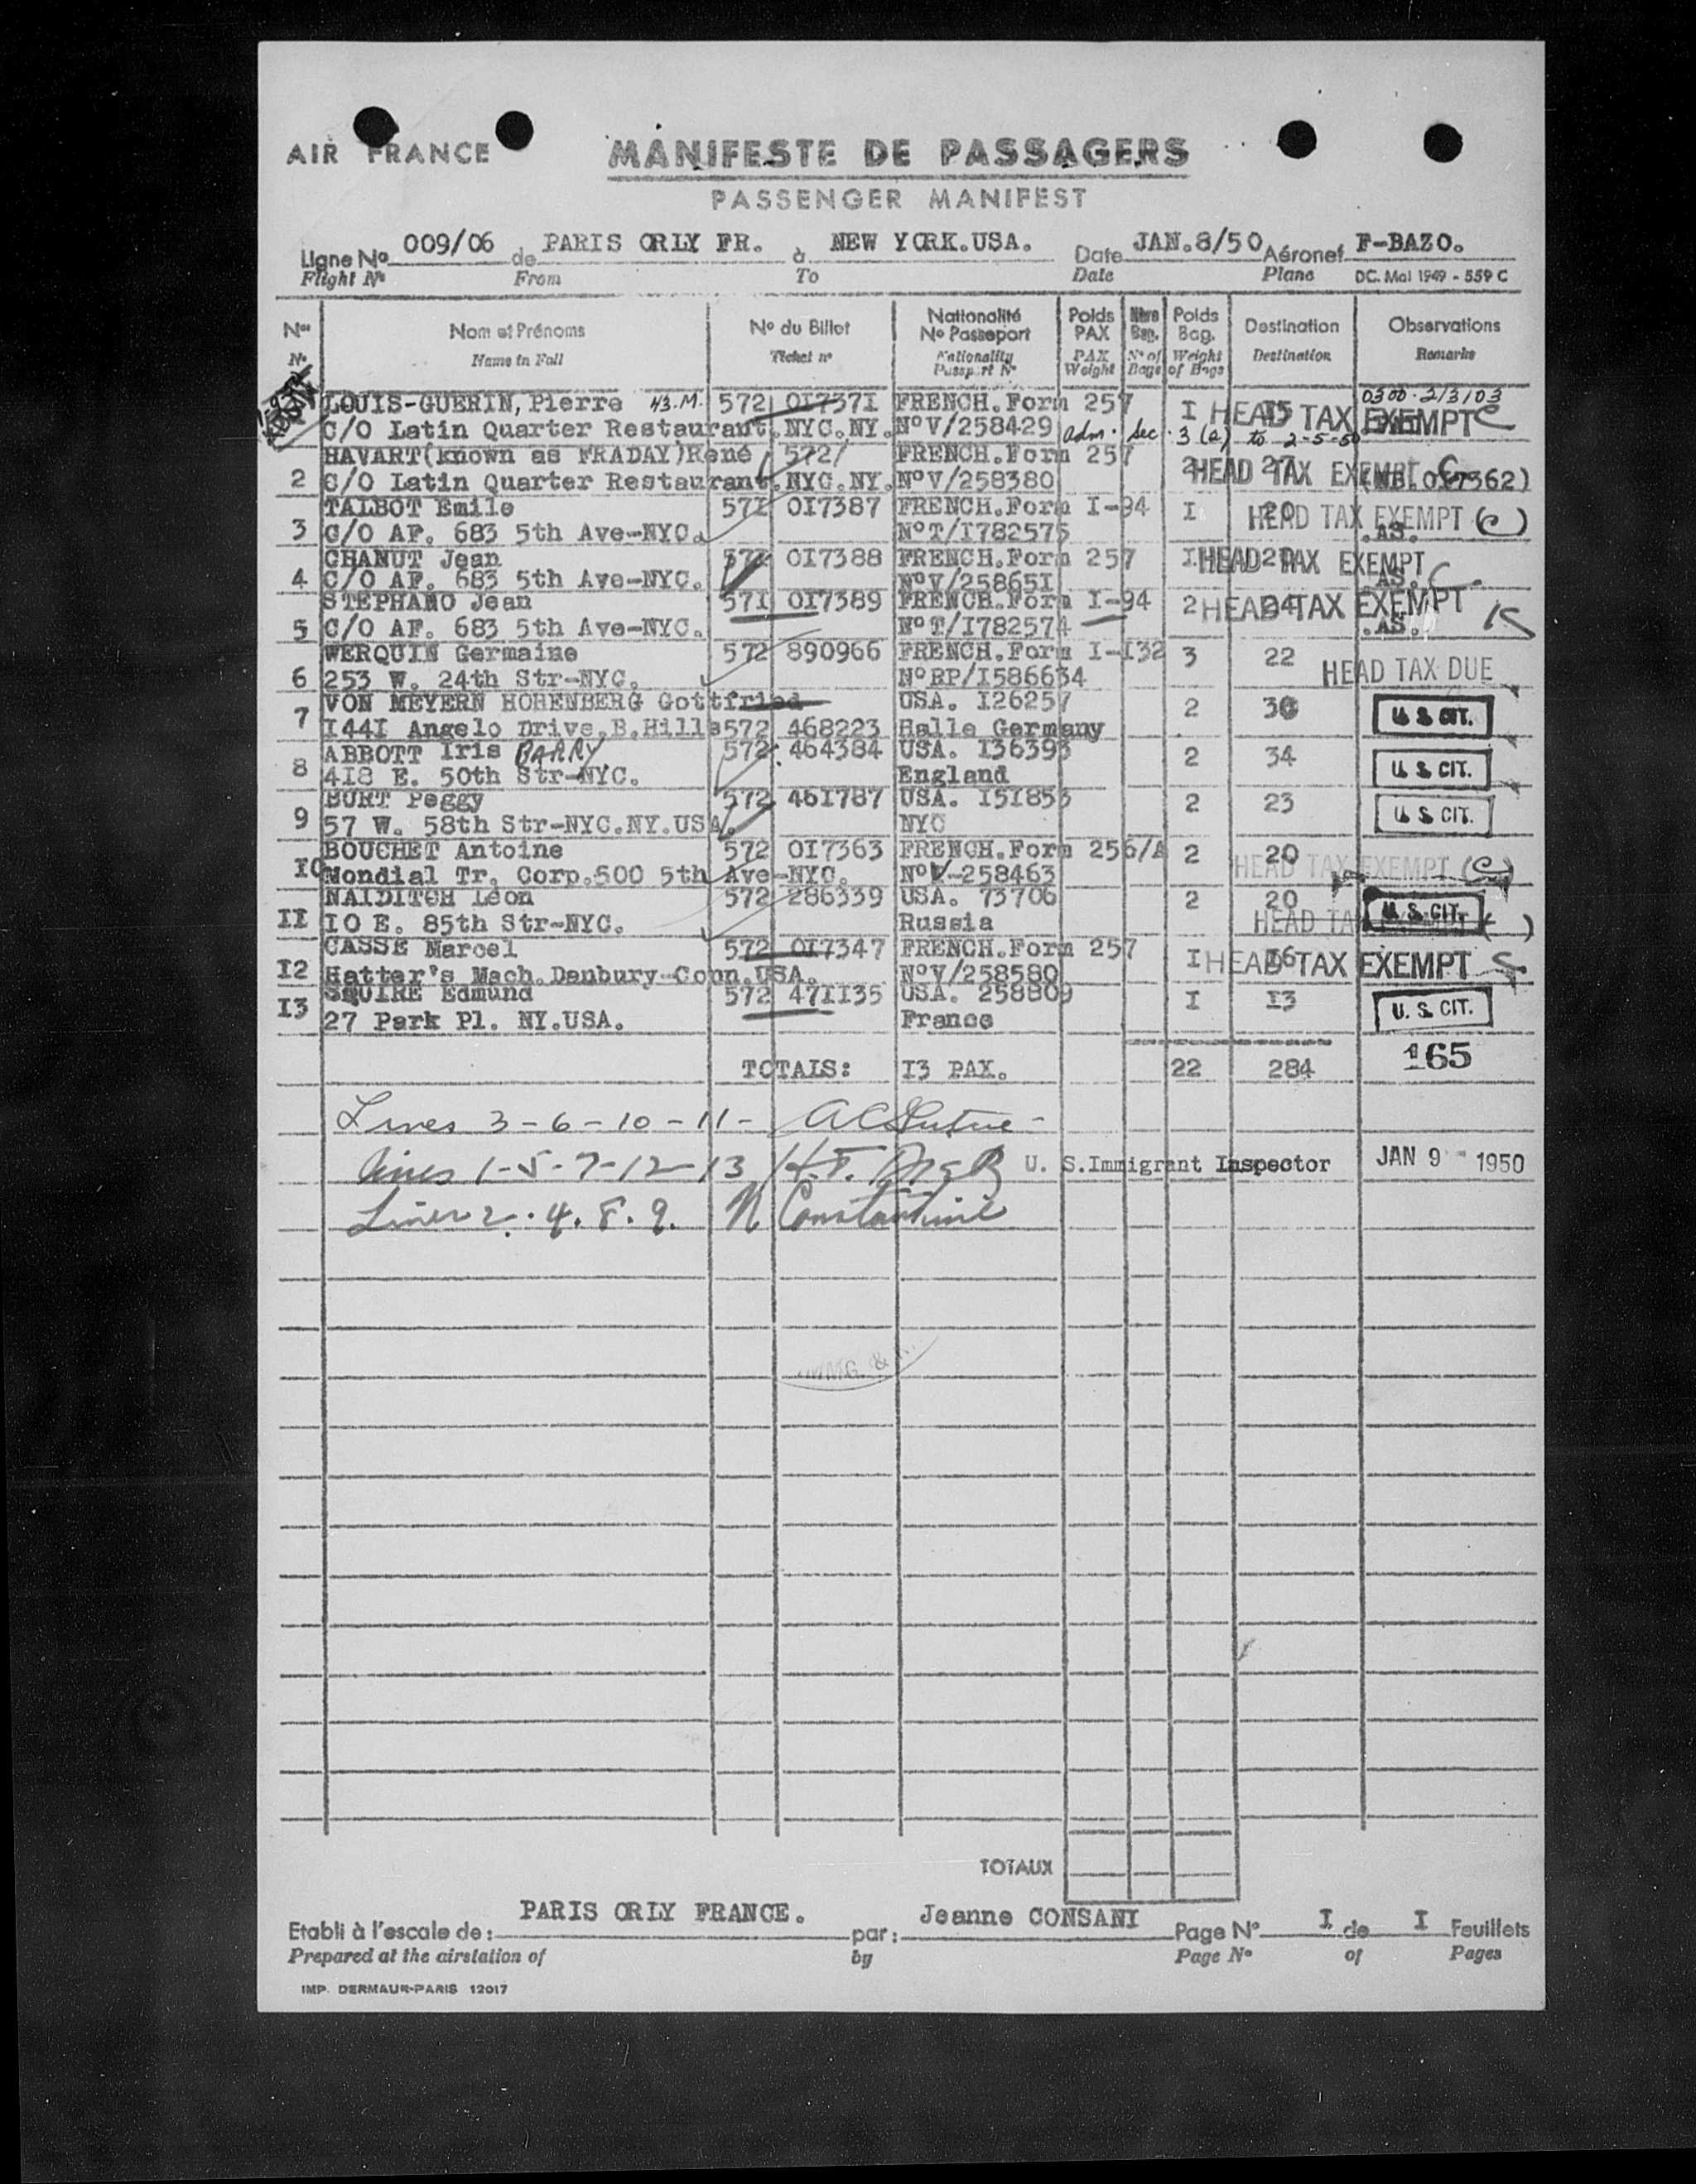 AIR FRANCE
MANIFESTE DE PASSAGERS
PASSENGER MANIFEST
Ligne No 009/06 de PARIS ORLY FR. à NEW YORK.USA. Date JAN.8/50 Aéronef F-BAZO.
Flight No From To Date Plane DC. Mai 1949 - 559 C
Nos Nom et Prénoms No du Billet Nationalité No Passeport Poids PAX Nbre Bag. Poids Bag. Destination Observations
No Name in Full Ticket no Nationality Passport No PAX Weight No of Bags Weight of Bags Destination Remarks
0300-2/3103
LOUIS-GUERIN, Pierre 43.M. 572 0I737I FRENCH.Form 257 I I5 HEAD TAX EXEMPT C
C/O Latin Quarter Restaurant.NYC.NY. NoV/258429 adm. sec. 3 (2) to 2-5-50
HAVART(known as FRADAY)René 572/ FRENCH.Form 257 2 27 HEAD TAX EXEMPT
2 C/O Latin Quarter Restaurant.NYC.NY. NoV/258380 (NB.0I7362)
TALBOT Emile 57I 0I7387 FRENCH.Form I-94 I 20 HEAD TAX EXEMPT (C)
3 C/O AF. 683 5th Ave-NYC. NoT/I782575 .AS.
CHANUT Jean 57I 0I7388 FRENCH.Form 257 I 20 HEAD TAX EXEMPT
4 C/O AF. 683 5th Ave-NYC. NoV/25865I .AS.
STEPHANO Jean 57I 0I7389 FRENCH.Form I-94 2 24 HEAD TAX EXEMPT
5 C/O AF. 683 5th Ave-NYC. NoT/I782574 .AS.
WERQUIN Germaine 572 890966 FRENCH.Form I-I32 3 22 HEAD TAX DUE
6 253 W. 24th Str-NYC. NoRP/I586634
VON MEYERN HOHENBERG Gottfried USA. I26257 2 30 U S CIT.
7 I44I Angelo Drive.B.Hills 572 468223 Halle Germany
ABBOTT Iris BARRY 572 464384 USA. I36393 2 34 U S CIT.
8 4I8 E. 50th Str-NYC. England
BURT Peggy 572 46I787 USA. I5I853 2 23 U S CIT.
9 57 W. 58th Str-NYC.NY.USA. NYC
BOUCHET Antoine 572 0I7363 FRENCH.Form 256/A 2 20 HEAD TAX EXEMPT (C)
I0 Mondial Tr. Corp.500 5th Ave-NYC. NoV-258463
NAIDITCH Léon 572 286339 USA. 73706 2 20 U. S. CIT.
II I0 E. 85th Str-NYC. Russia HEAD TAX
CASSE Marcel 572 0I7347 FRENCH.Form 257 I I6 HEAD TAX EXEMPT
I2 Hatter's Mach.Danbury-Conn.USA. NoV/258580
SQUIRE Edmund 572 47II35 USA. 258809 I I3 U. S. CIT.
I3 27 Park Pl. NY.USA. France
TOTAIS: I3 PAX. 22 284 165
Lines 3-6-10-11-
Lines 1-5-7-12-13 U. S.Immigrant Inspector JAN 9 - 1950
Lines 2. 4. 8. 9. N Constantine
IMMG. &
TOTAUX
Etabli à l'escale de: PARIS ORLY FRANCE. par: Jeanne CONSANI Page No I de I Feuillets
Prepared at the airstation of by Page No of Pages
IMP. DERMAUR-PARIS 12017